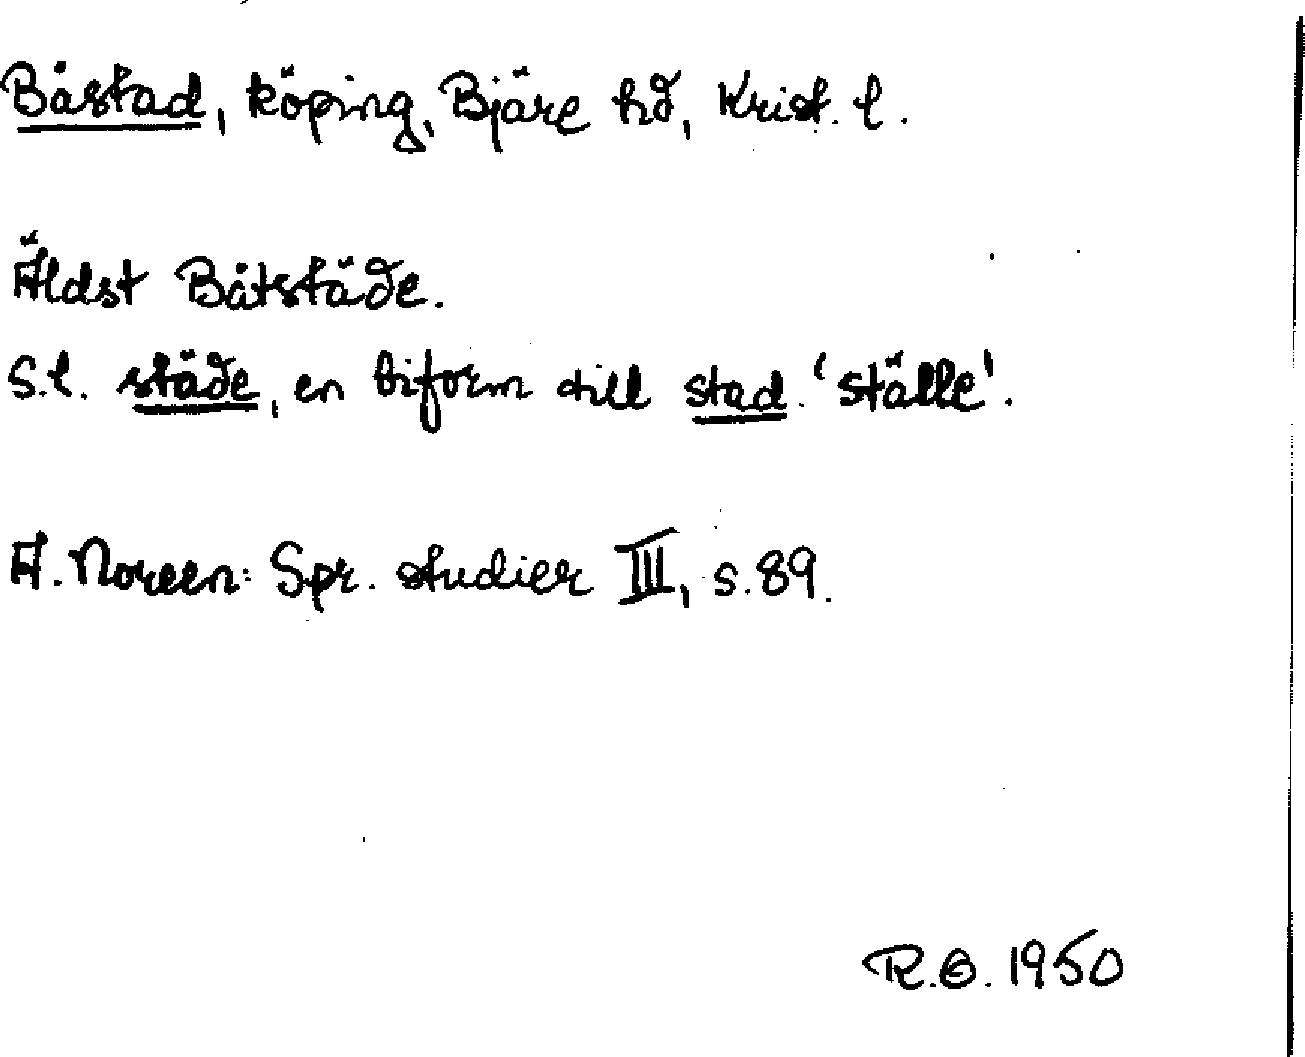 Båstad, köping, Bjäre hd, Krist. l.
Äldst Båtstäde.
S.l. städe, en biform till stad 'ställe'.
A. Noreen: Spr. studier III, s. 89.
R.G. 1950